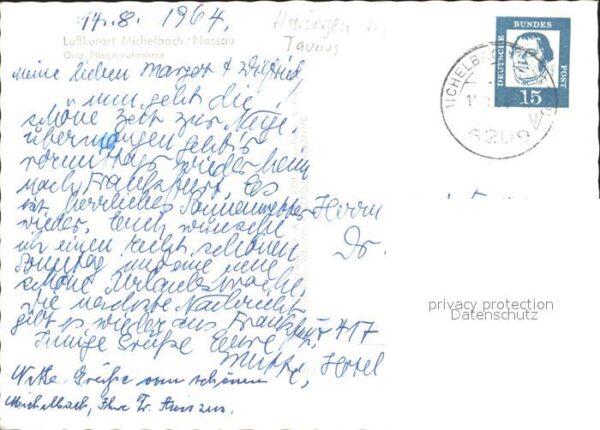 14.8.1964.
Luftkurort Michelbach/Nassau
Orig. Fliegeraufnahme
Taunus
Meine lieben Margot & Wilfried,
nun geht die
schöne Zeit zur Neige,
übermorgen geht's
vormittags wieder heim
nach Frankfurt. Es
ist herrliches Sonnenwetter
wieder. Euch wünsche
ich einen recht schönen
Sonntag und eine
schöne Urlaubswoche,
die nächste Nachricht
gibt es wieder aus Frankfurt.
Innige Grüße Eure
Mutti,
Nette Grüße vom schönen
Michelbach, Ihre Fr.
DEUTSCHE BUNDES POST
15
MICHELBACH
6209
Herrn
Dr.
417
Hotel
privacy protection
Datenschutz